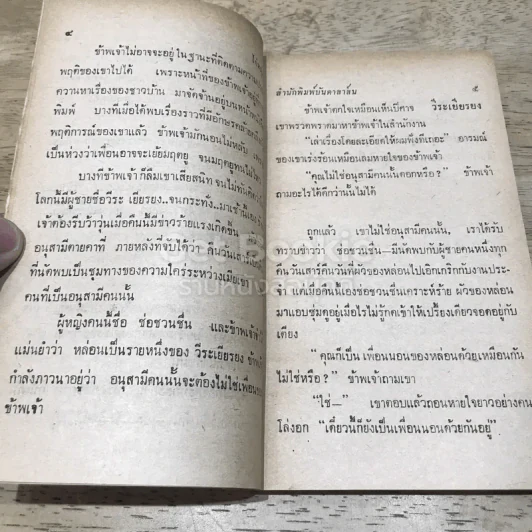 ๔
ข้าพเจ้าไม่อาจจะอยู่ในฐานะที่ติดตามความ
พฤติของเขาไปได้ เพราะหน้าที่ของข้าพเจ้า
ควานหาเรื่องของชาวบ้าน มาจัดจ้านอยู่บนหน้า
พิมพ์ บางทีเมื่อได้พบเรื่องราวที่มีอักษรคล้าย
พฤติการณ์ของเขาแล้ว ข้าพเจ้ามักนอนไม่หลับ
เป็นห่วงว่าเพื่อนอาจจะเยี่ยมฤดยู จนมฤตยู
บางทีข้าพเจ้าก็ลืมเขาเสียสนิท จนไม่
โลกนี้มีผู้ชายชื่อวีระ เยียรยง..จนกระทั่ง..มาเช้านี้เอง
เจ้าต้องรีบว้าวุ่นเมื่อคืนนี้มีข่าวร้ายแรงเกิดขึ้น
อนุสามีตายคาที่ ภายหลังที่จับได้ว่า คืนวัน
ที่นัดพบเป็นชุมทางของความใคร่ระหว่างเมียเขา
คนที่เป็นอนุสามีคนนั้น
ผู้หญิงคนนี้ชื่อ ช่อชวนชื่น และข้าพเจ้า
แม่นยำว่า หล่อนเป็นรายหนึ่งของ วีระเยียรยง
กำลังภาวนาอยู่ว่า อนุสามีคนนั้นจะต้องไม่ใช่เพื่อน
ข้าพเจ้า
สำนักพิมพ์บันดาลาส์น
๕
ข้าพเจ้าตกใจเหมือนเห็นปีศาจ วีระเยียรยง
เขาพรวดพราดมาหาข้าพเจ้าในสำนักงาน
"เล่าเรื่องโดยละเอียดให้ผมฟังทีเถอะ" อารมณ์
ของเขาเร่งร้อนเหมือนลมหายใจของข้าพเจ้า
"คุณไม่ใช่อนุสามีคนนั้นดอกหรือ?" ข้าพเจ้า
ถามอะไรได้ดีกว่านั้นไม่ได้
ถูกแล้ว เขาไม่ใช่อนุสามีคนนั้น, เราได้รับ
ทราบข่าวว่า ช่อชวนชื่น—มีนัดพบกับผู้ชายคนหนึ่งทุก
คืนวันเสาร์คืนวันที่ผัวของหล่อนไปเอิกเกริกกับงานประ-
และเมื่อคืนนี้เองช่อชวนชื่นเคราะห์ร้าย ผัวของหล่อน
มาแอบซุ่มดูอยู่เมื่อไรไม่รู้กดเข้าให้เปรี้ยงเดียวจอดอยู่กับ
เตียง
"คุณก็เป็น เพื่อนนอนของหล่อนด้วยเหมือนกัน
ไม่ใช่หรือ?" ข้าพเจ้าถามเขา
"ใช่—" เขาตอบแล้วถอนหายใจยาวอย่างคน
โล่งอก "เดี๋ยวนี้ก็ยังเป็นเพื่อนนอนด้วยกันอยู่"